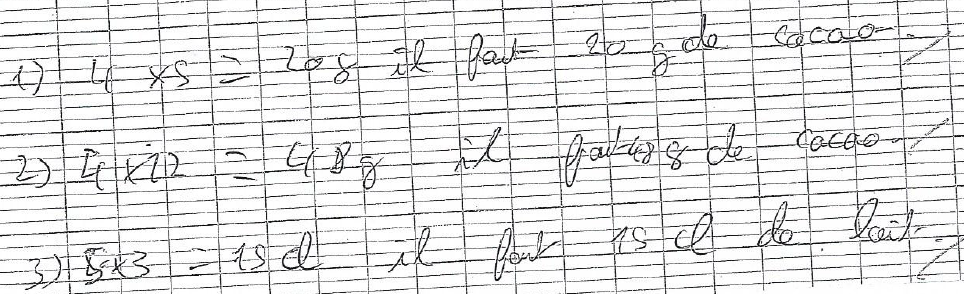 1) 4 x 5 = 20 g il faut 20 g de cacao.
2) 4 x 12 = 48 g il faut 48 g de cacao.
3) 5 x 3 = 15 cl il faut 15 cl de lait.